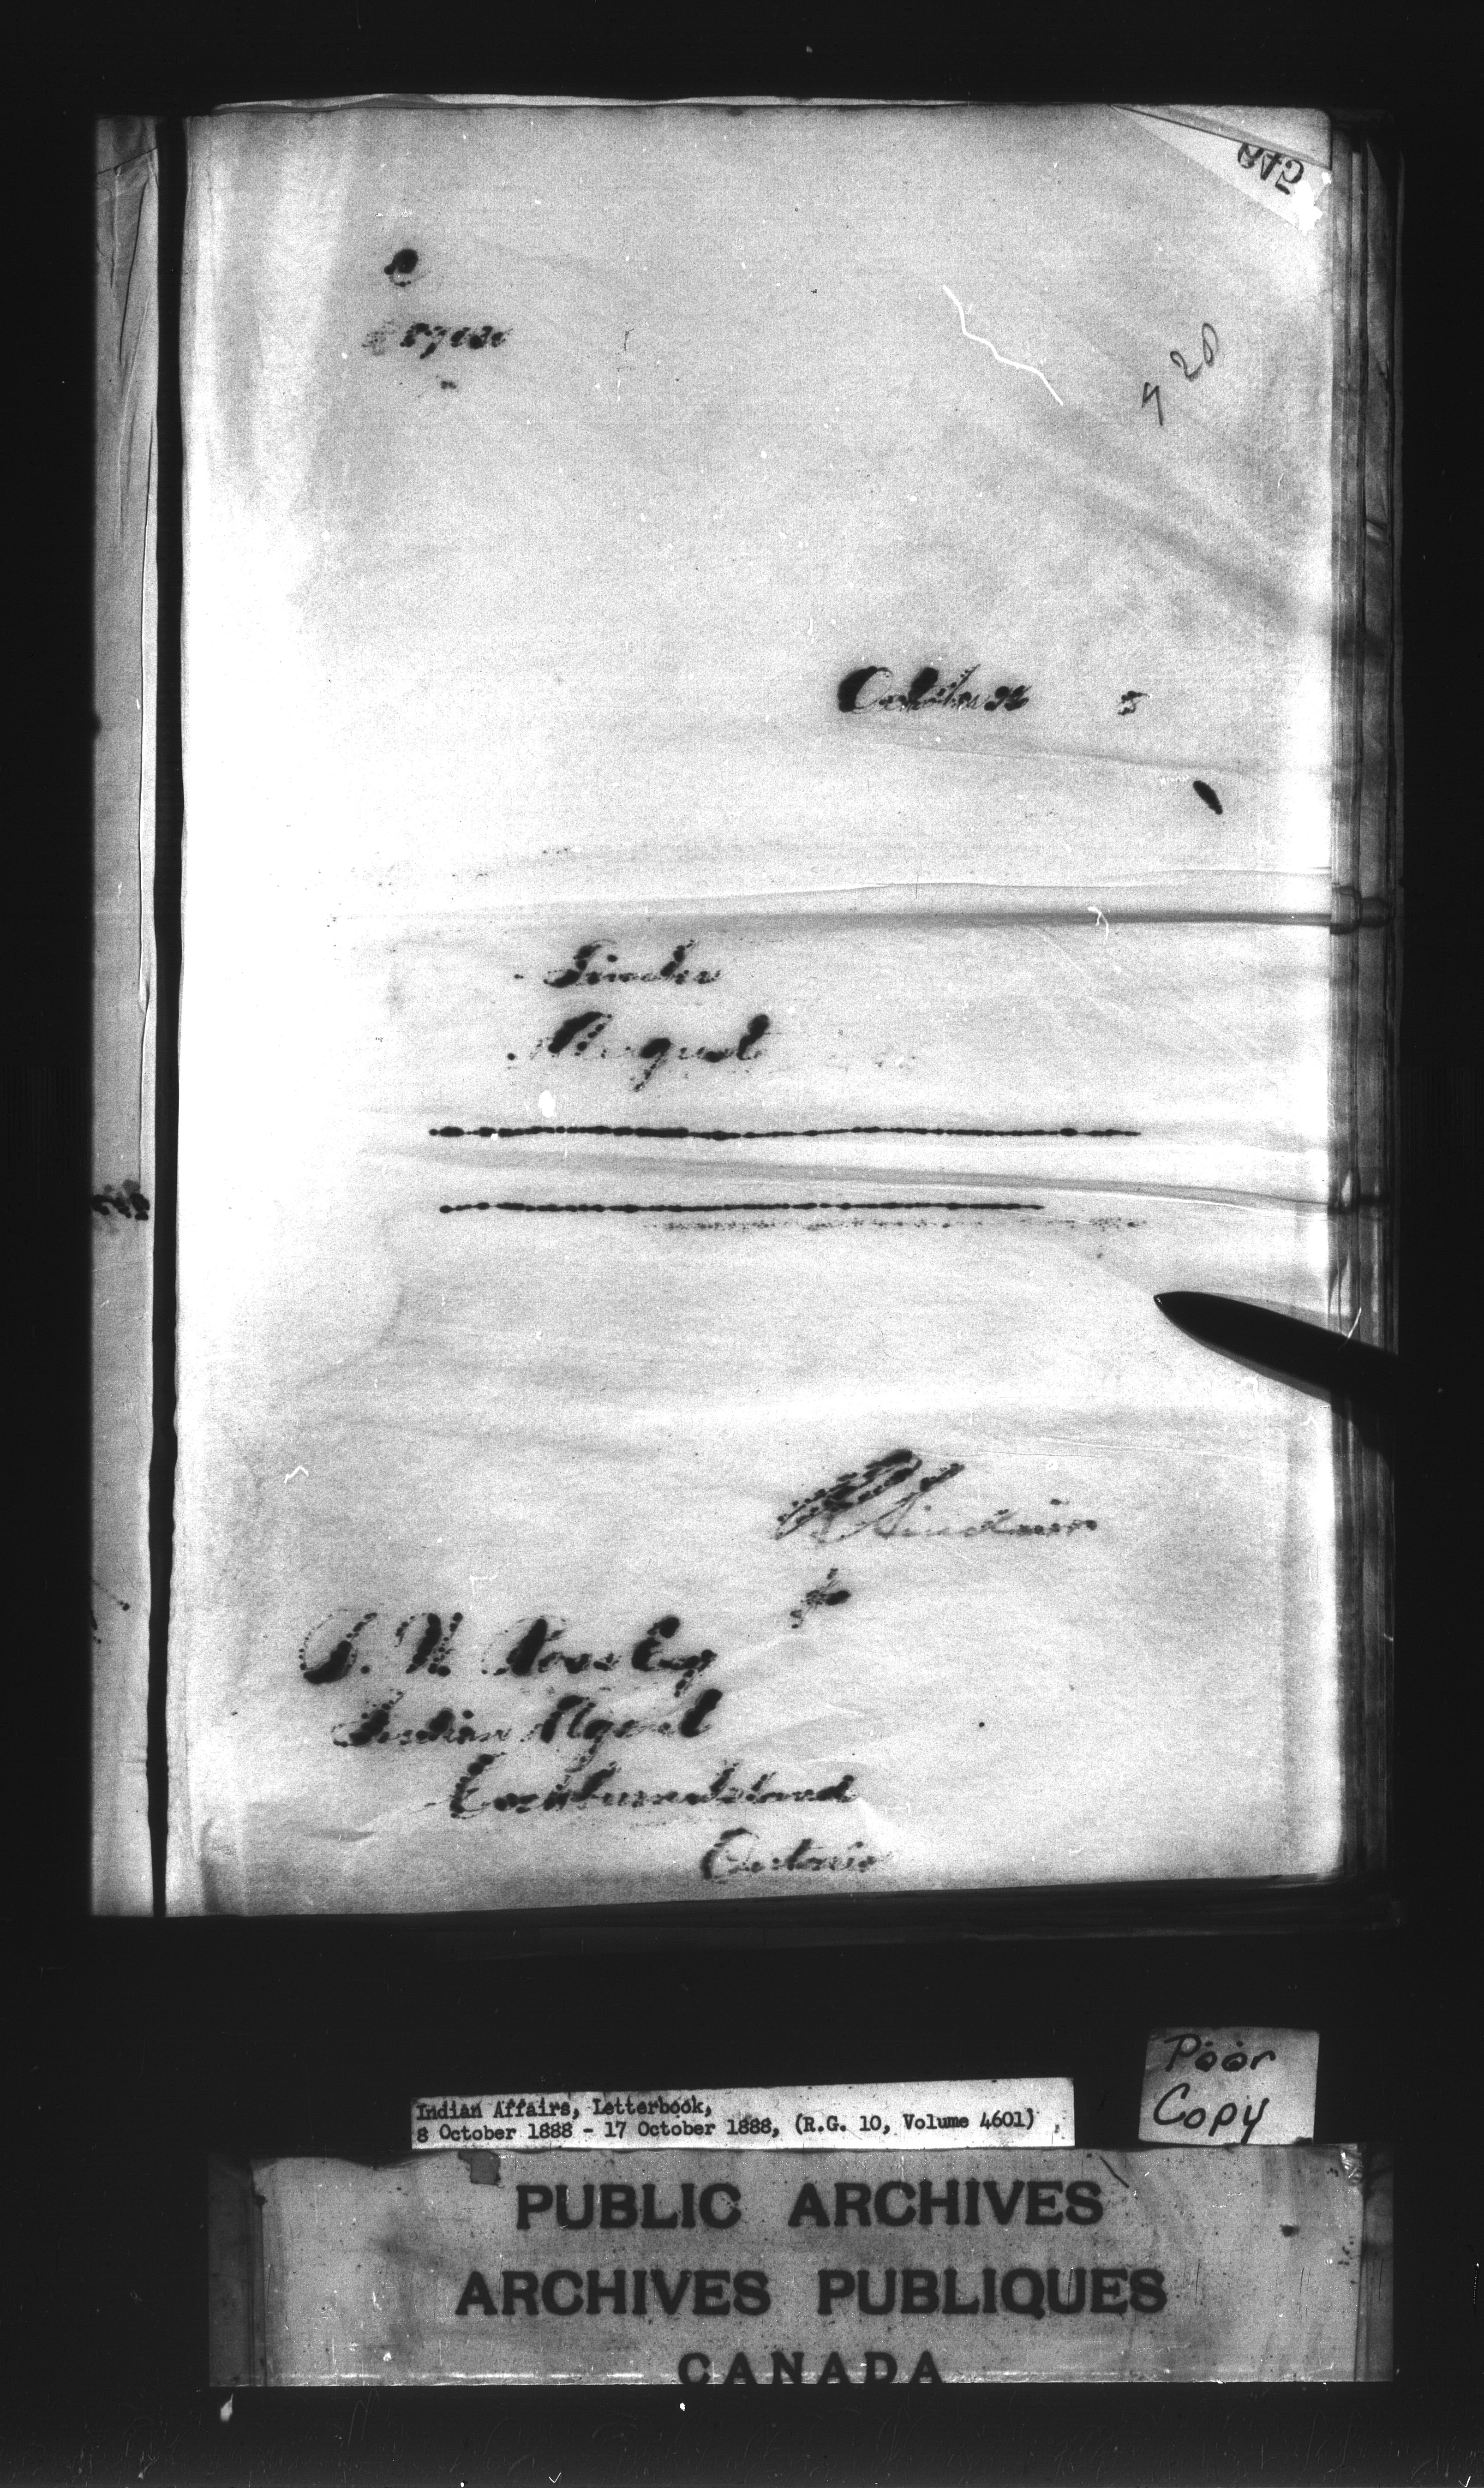 920
October 8
Timber
August
R Sinclair
B. W. Ross Esq
Indian Agent
Cockburn Island
Ontario
Poor
Copy
Indian Affairs, Letterbook,
8 October 1888 - 17 October 1888, (R.G. 10, Volume 4601)
PUBLIC ARCHIVES
ARCHIVES PUBLIQUES
CANADA